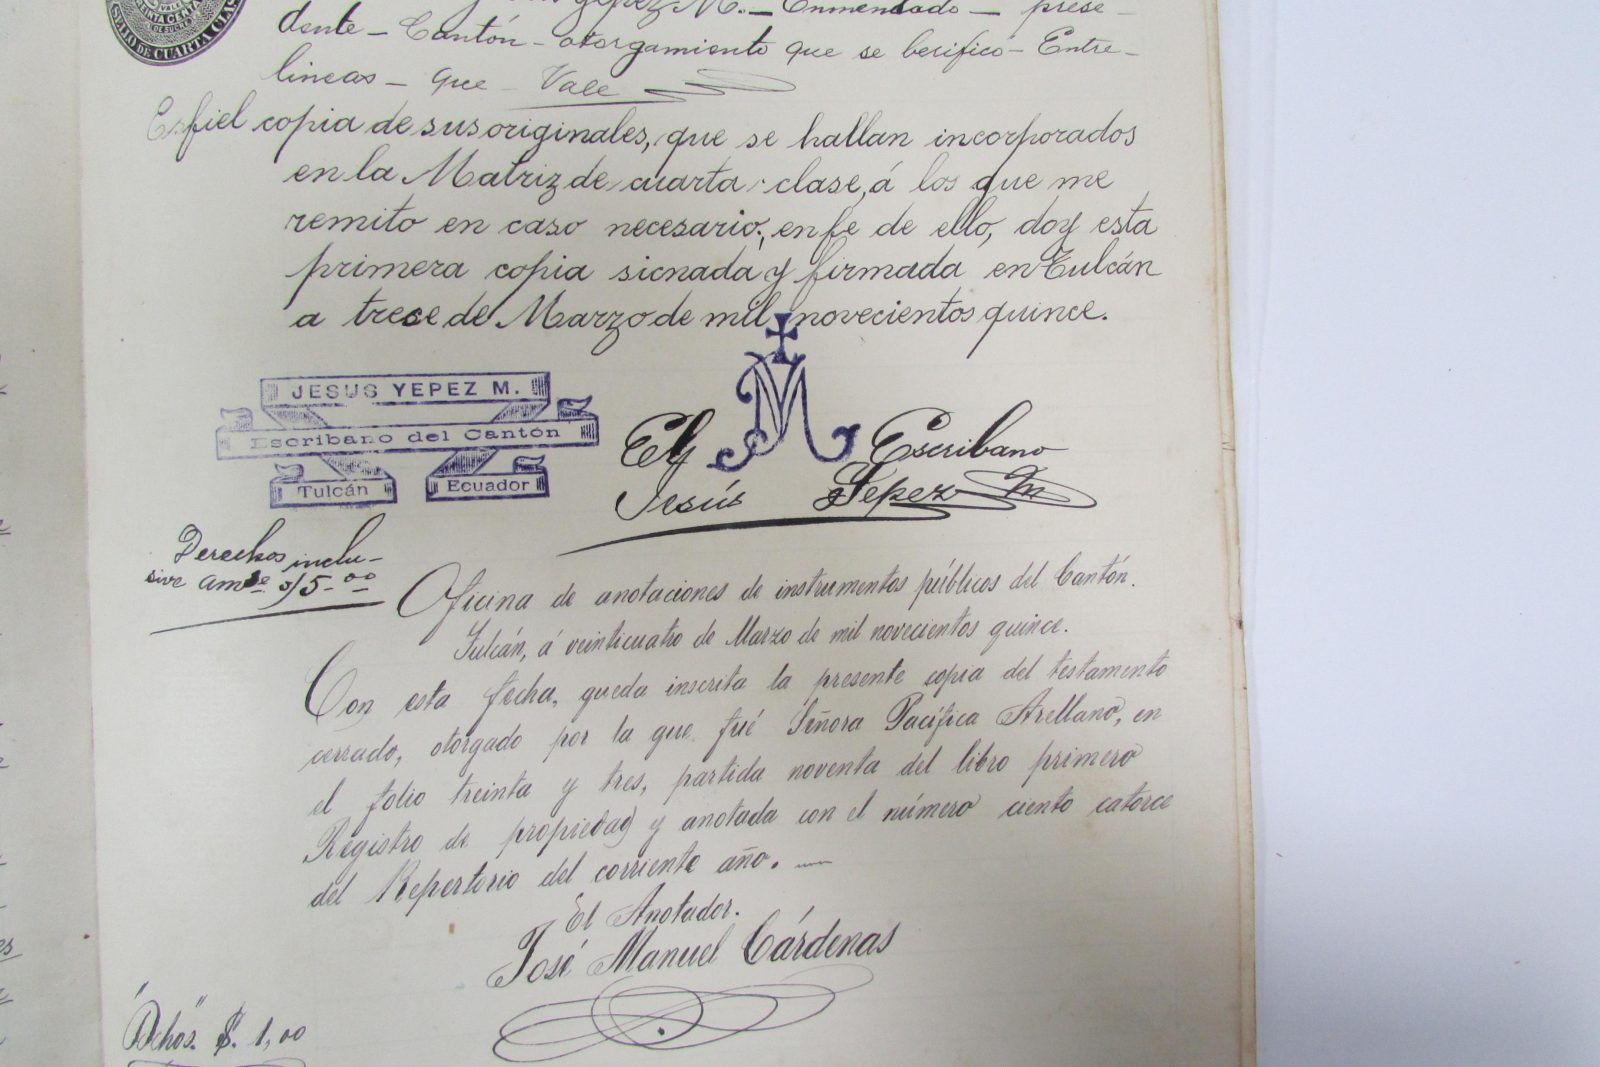 Yepez M. – Enmendado – prese-
dente – Cantón – otorgamiento que se berificó – Entre-
lineas – que – Vale
Es fiel copia de sus originales, que se hallan incorporados
en la Matriz de cuarta clase, á los que me
remito en caso necesario; en fe de ello, doy esta
primera copia sicnada y firmada en Tulcán
a trece de Marzo de mil novecientos quince.
JESUS YEPEZ M.
Escribano del Cantón
Tulcán Ecuador
M
El Escribano
Jesús Yepez M
Derechos inclu-
sive amse s/5-00
Oficina de anotaciones de instrumentos públicos del Cantón.
Tulcán, á veinticuatro de Marzo de mil novecientos quince.
Con esta fecha, queda inscrita la presente copia del testamento
cerrado, otorgado por la que fué Señora Pacífica Arellano, en
el folio treinta y tres, partida noventa del libro primero
Registro de propiedad y anotada con el número ciento catorce
del Repertorio del corriente año. —
El Anotador.
José Manuel Cárdenas
"Dchos." $. 1,00